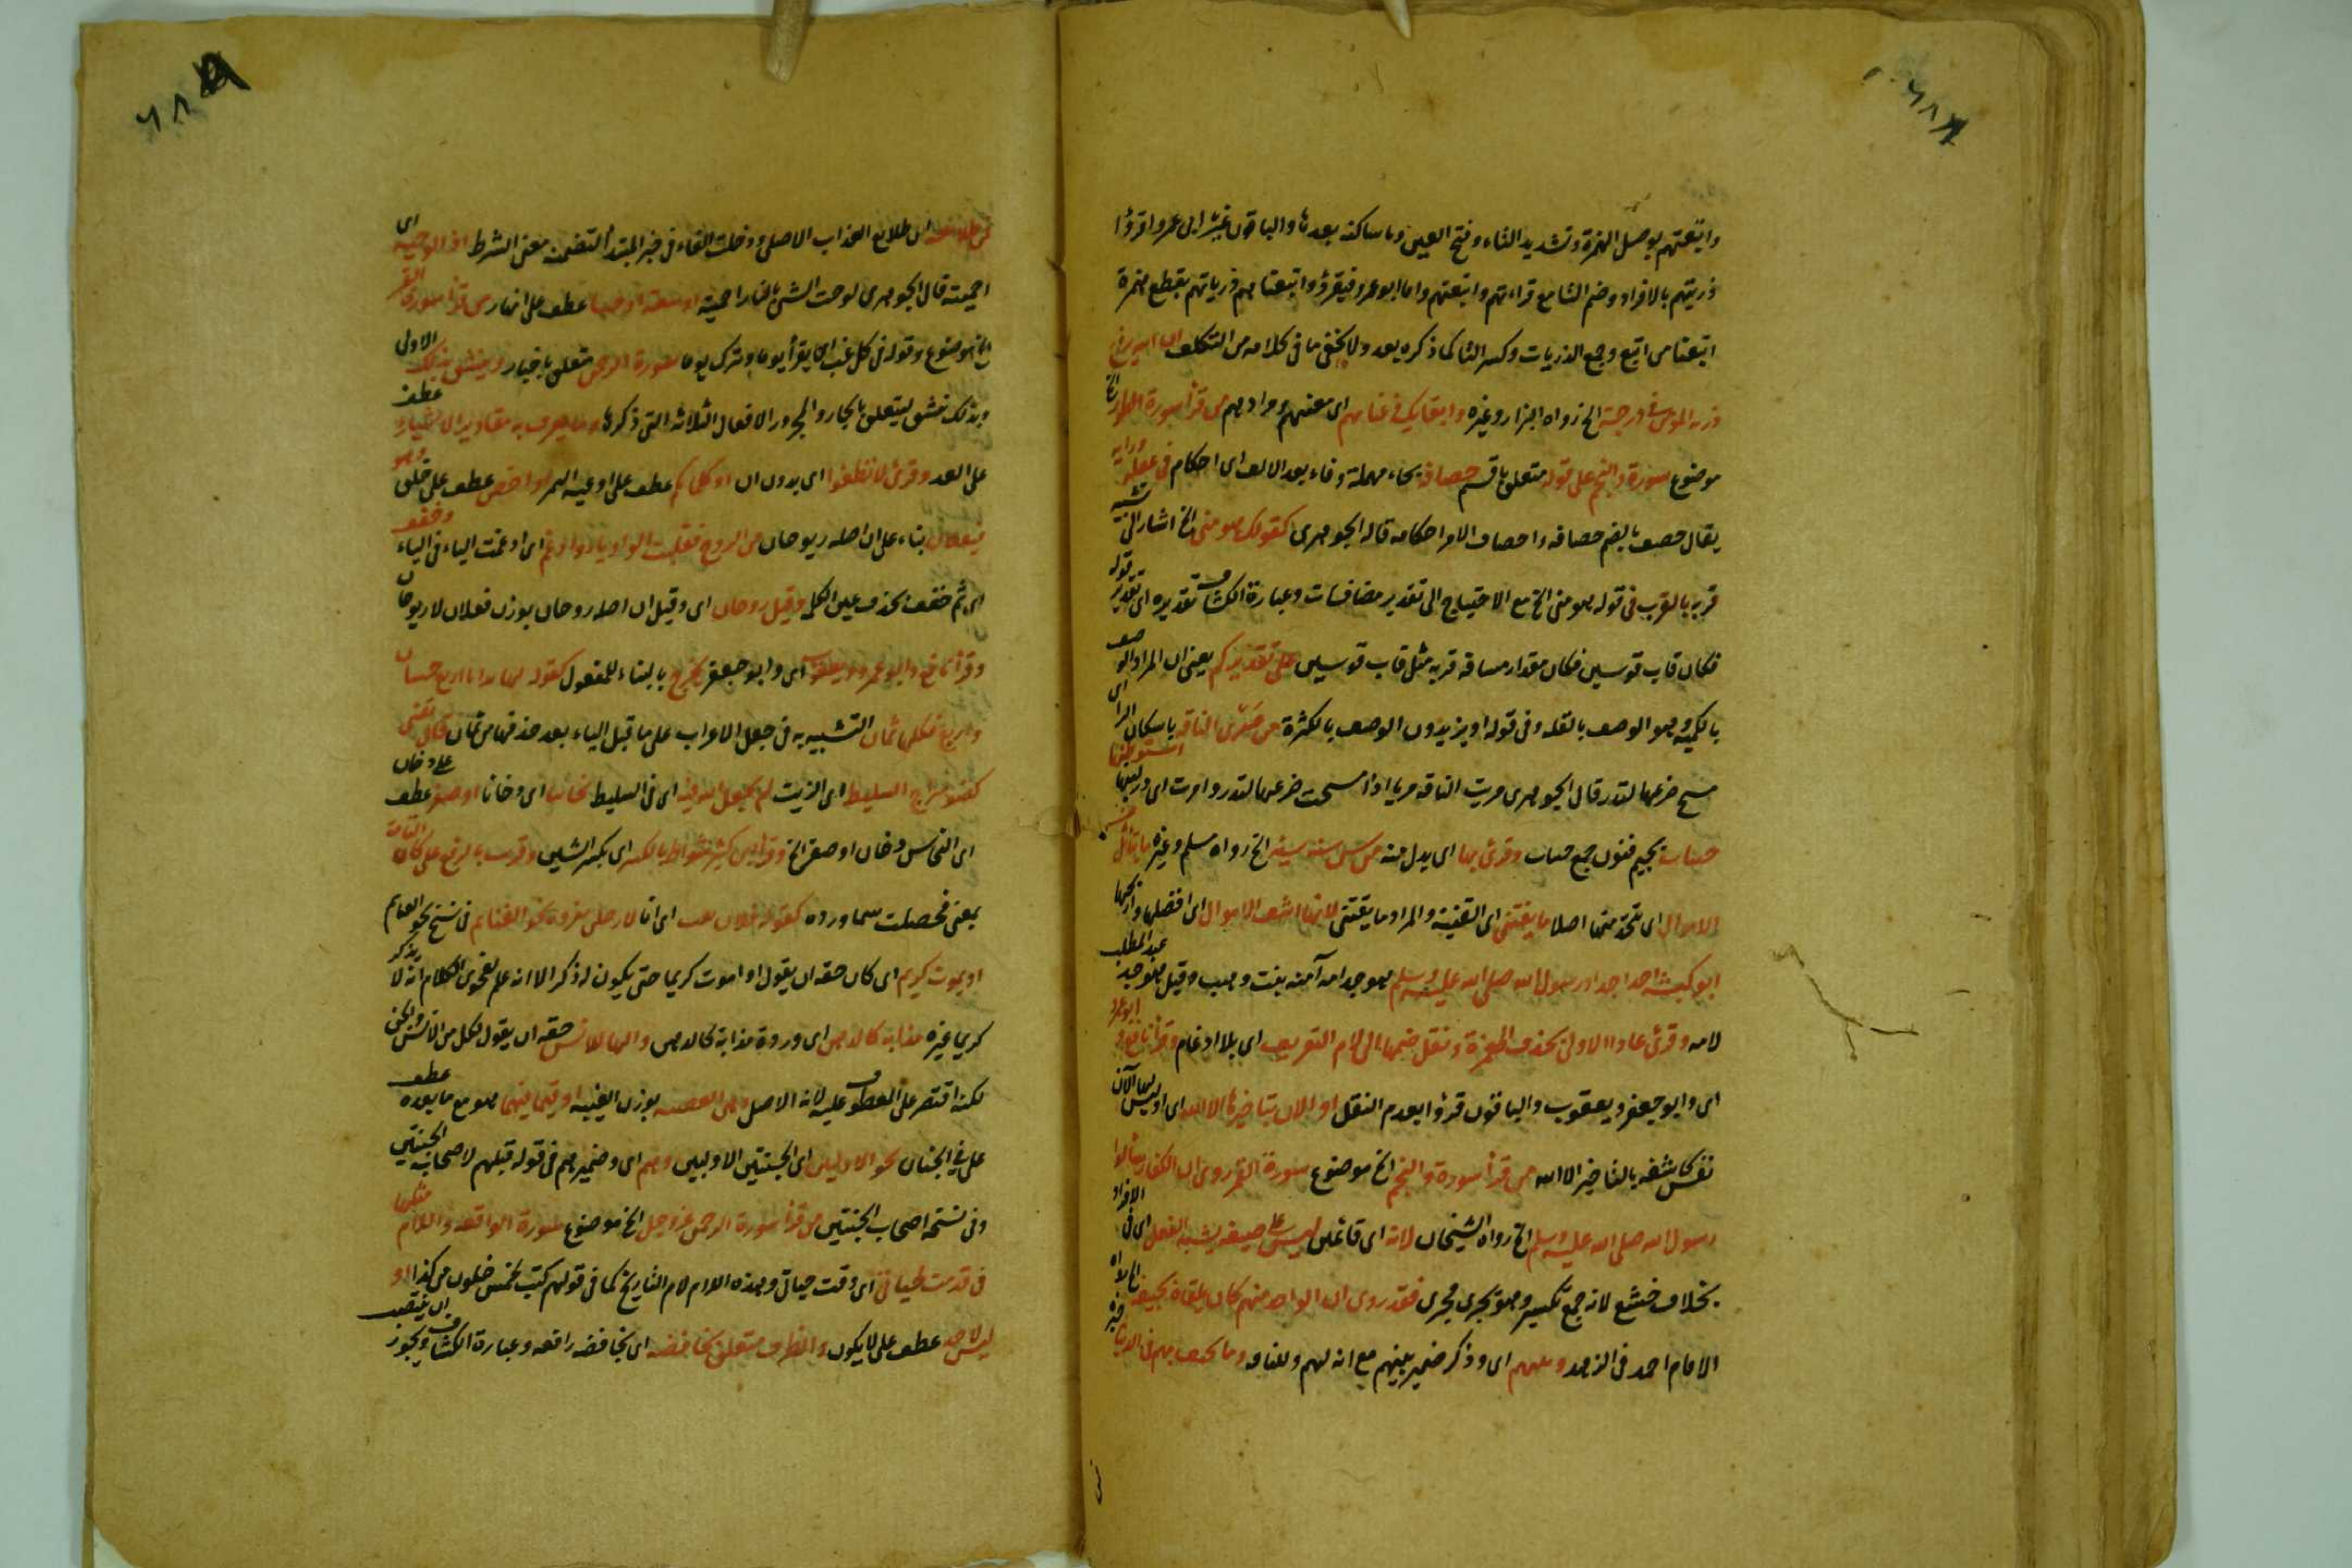 واتبعتهم بوصل الهمزة وتشديد التاء وفتح العين وتاء ساكنة بعدها والباقون غير ابي عمرو اقرؤا
ذريتهم بالافراد وضم التا مع قراءتهم واتبعتهم واما ابو عمرو فيقرؤ واتبعناهم ذرياتهم بقطع همزة
اتبعنا من اتبع وجمع الذريات وكسر التا كما ذكره بعد ولا يخفى ما في كلامه من التكلف ان الله يرفع
ذرية المؤمن في درجته الخ رواه البزار وغيره اي معنهم ومرادهم من قرأ سورة الطور الخ
موضوع سورة والنجم على قوله متعلق باقسم حصافة بحاء مهملة وفاء بعد الالف اي احكام في عقله ورايه
يقال حصف بالضم حصافة واحصاف الامر احكامه قاله الجوهري كقولك هو مني الخ اشار الى تشبيه
قربه بالقرب في قوله هو مني الخ مع الاحتياج الى تقدير مضافات وعبارة الكشاف تقديره اي تقدير قوله
فكان قاب قوسين فكان مقدار مسافة قربه مثل قاب قوسين على تقديركم يعني ان المراد الوصف
بالكمية وهو الوصف بالقلة وفي قوله او يزيدون الوصف بالكثرة من مري الناقة باسكان الراء اي
مسح ضرعها لتدر قال الجوهري مريت الناقة مريا اذا مسحت ضرعها لتدر وامرت اي در لبنها
بجيم فنون جمع وقرئ بها اي بدل منه من سن سنة سيئة الخ رواه مسلم وغيره
الاموال اي تتخذ منها اصلا ما يقتنى اي القنية والمراد ما يقتنى لانها اشف الاموال اي افضلها وازكيها
ابو كبشة احد اجداد رسول الله صلى الله عليه وسلم هو جد امه آمنة بنت وهب وقيل هو جد عبد المطلب
لامه وقرئ عادا الاولى بحذف الهمزة ونقل ضمها الى لام التعريف اي بلا ادغام وقرأ نافع وابو عمرو
اي وابو جعفر ويعقوب والباقون قرؤا بعدم النقل او الان بتاخيرها الا الله اي او ليس لها الآن
نفس كاشفة بالتاخير الا الله من قرأ سورة والنجم الخ موضوع سورة القمر روى ان الكفار سألوا
رسول الله صلى الله عليه وسلم الخ رواه الشيخان لانه اي قائمين ليس على صيغة يشبه الفعل اي في الافراد
بخلاف خشع لانه جمع تكسير وهو يجري مجرى فقد روى ان الواحد منهم كان يلقاه فيخنقه الخ رواه
الامام احمد في الزهد وبينهم اي وذكر ضمير بينهم مع انه لهم وللناقة وما يحيف بهم في الدنيا خبره
فمن طلائعه اي طلايع العذاب الاصلي ودخلت الفاء في خبر المبتدأ لتضمنه معنى الشرط اي
احميته قال الجوهري لوحت الشئ بالنار احميته او سعة او ضياء عطف على انهار من قرأ سورة القمر
الخ موضوع وقوله في كل غب اي يقرأ يوما ويترك يوما سورة الرحمن متعلق باخبار الاولى
وبذلك فيتعلق بالجار والمجرور الافعال الثلاثة التي ذكرها وما يعرف به مقادير الاشياء عطف
على العدد وقرئ لا تطغوا اي بدون ان او كل كم عطف على اوعية الثمر او اخص عطف على خلق وهو
بناء على ان اصله ريوحان من الروح فقلبت الواو ياء وادغم اي ادغمت الياء في الياء وخفف
اي ثم خفف بحذف عين الكلمة وقيل روحان اي وقيل ان اصله روحان بوزن فعلان لا ريوحان
وقرأ نافع وابو عمرو ويعقوب اي وابو جعفر يخرج بالبناء للمفعول كقوله لها ثنايا اربع حسان
واربع فكلها ثمان التشبيه به في جعل الاعراب على ما قبل الياء بعد حذفها من ثمان
كضوء سراج السليط اي الزيت لم يجعل الله فيه اي في السليط نحاسا اي دخانا او صفر عطف على دخان
اي النحاس دخان او صفر الخ وقرأ ابن كثير شواظ بالكسر اي بكسر الشين وقرئت بالرفع على كان التامة
بمعنى فحصلت سماء وردة كقوله فلان اي انا لا رجلن بغزوة نحو الغنائم في نسخ تحوي الغنايم
او يموت كريم اي كان حقه ان يقول او اموت كريما حتى يكون له ذكر الا انه علم بفحوى الكلام انه لا يذكر
كريما غيره مذابة كالدهن اي وردة مذابة كالدهن والهاء للانس حقه ان يقول لكل من الانس والجن
لكنه اقتصر على المعطوف عليه لانه الاصل بوزن الغنية او فيما فيهما هو مع ما بعده عطف
على في الجنان نحو الاوليين اي الجنتين الاوليين وهم اي وضميرهم في قوله قبلهم لاصحاب الجنتين
وفي نسخة اصحاب الجنتين من قرأ سورة الرحمن عز وجل الخ موضوع سورة الواقعة واللام مثلها
في قدمت لحياتي اي وقت حياتي وهذه اللام لام التاريخ كما في قولهم كتبت لخمس خلون من كذا او
ليس لاحد عطف على لا يكون والظرف متعلق بخافضة اي بخافضة رافعة وعبارة الكشاف ويجوز ان ينتصب